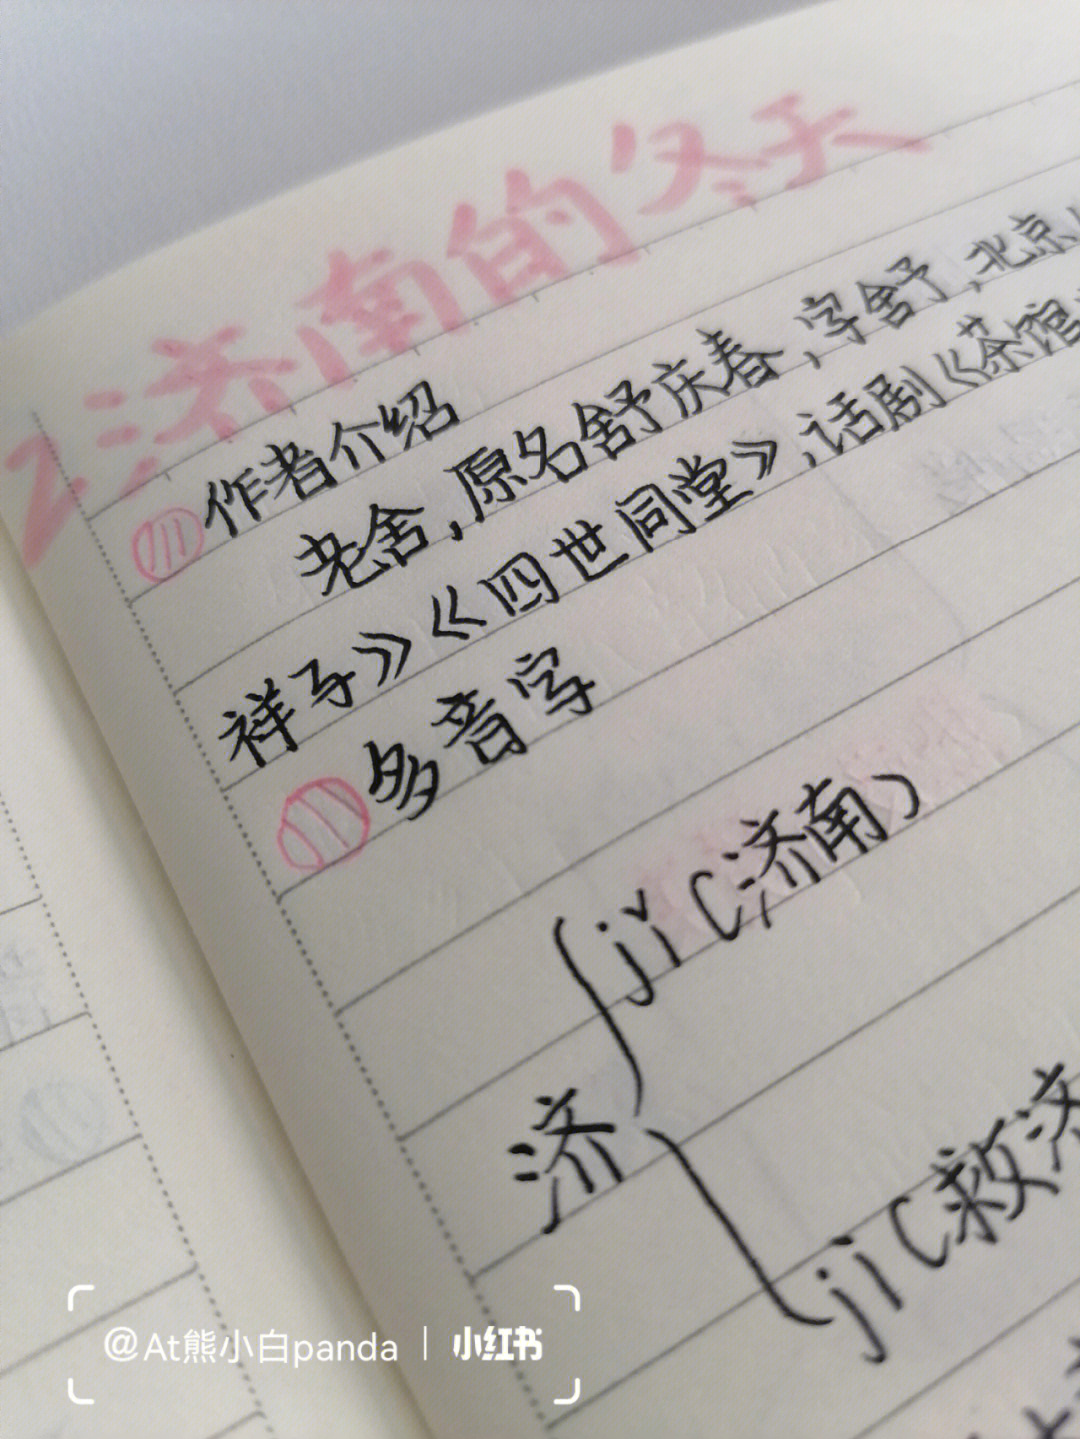 2济南的冬天
作者介绍
老舍,原名舒庆春,字舍予,北京
祥子》《四世同堂》,话剧《茶馆
多音字
济
jǐ(济南)
jì(救济
@At熊小白panda | 小红书